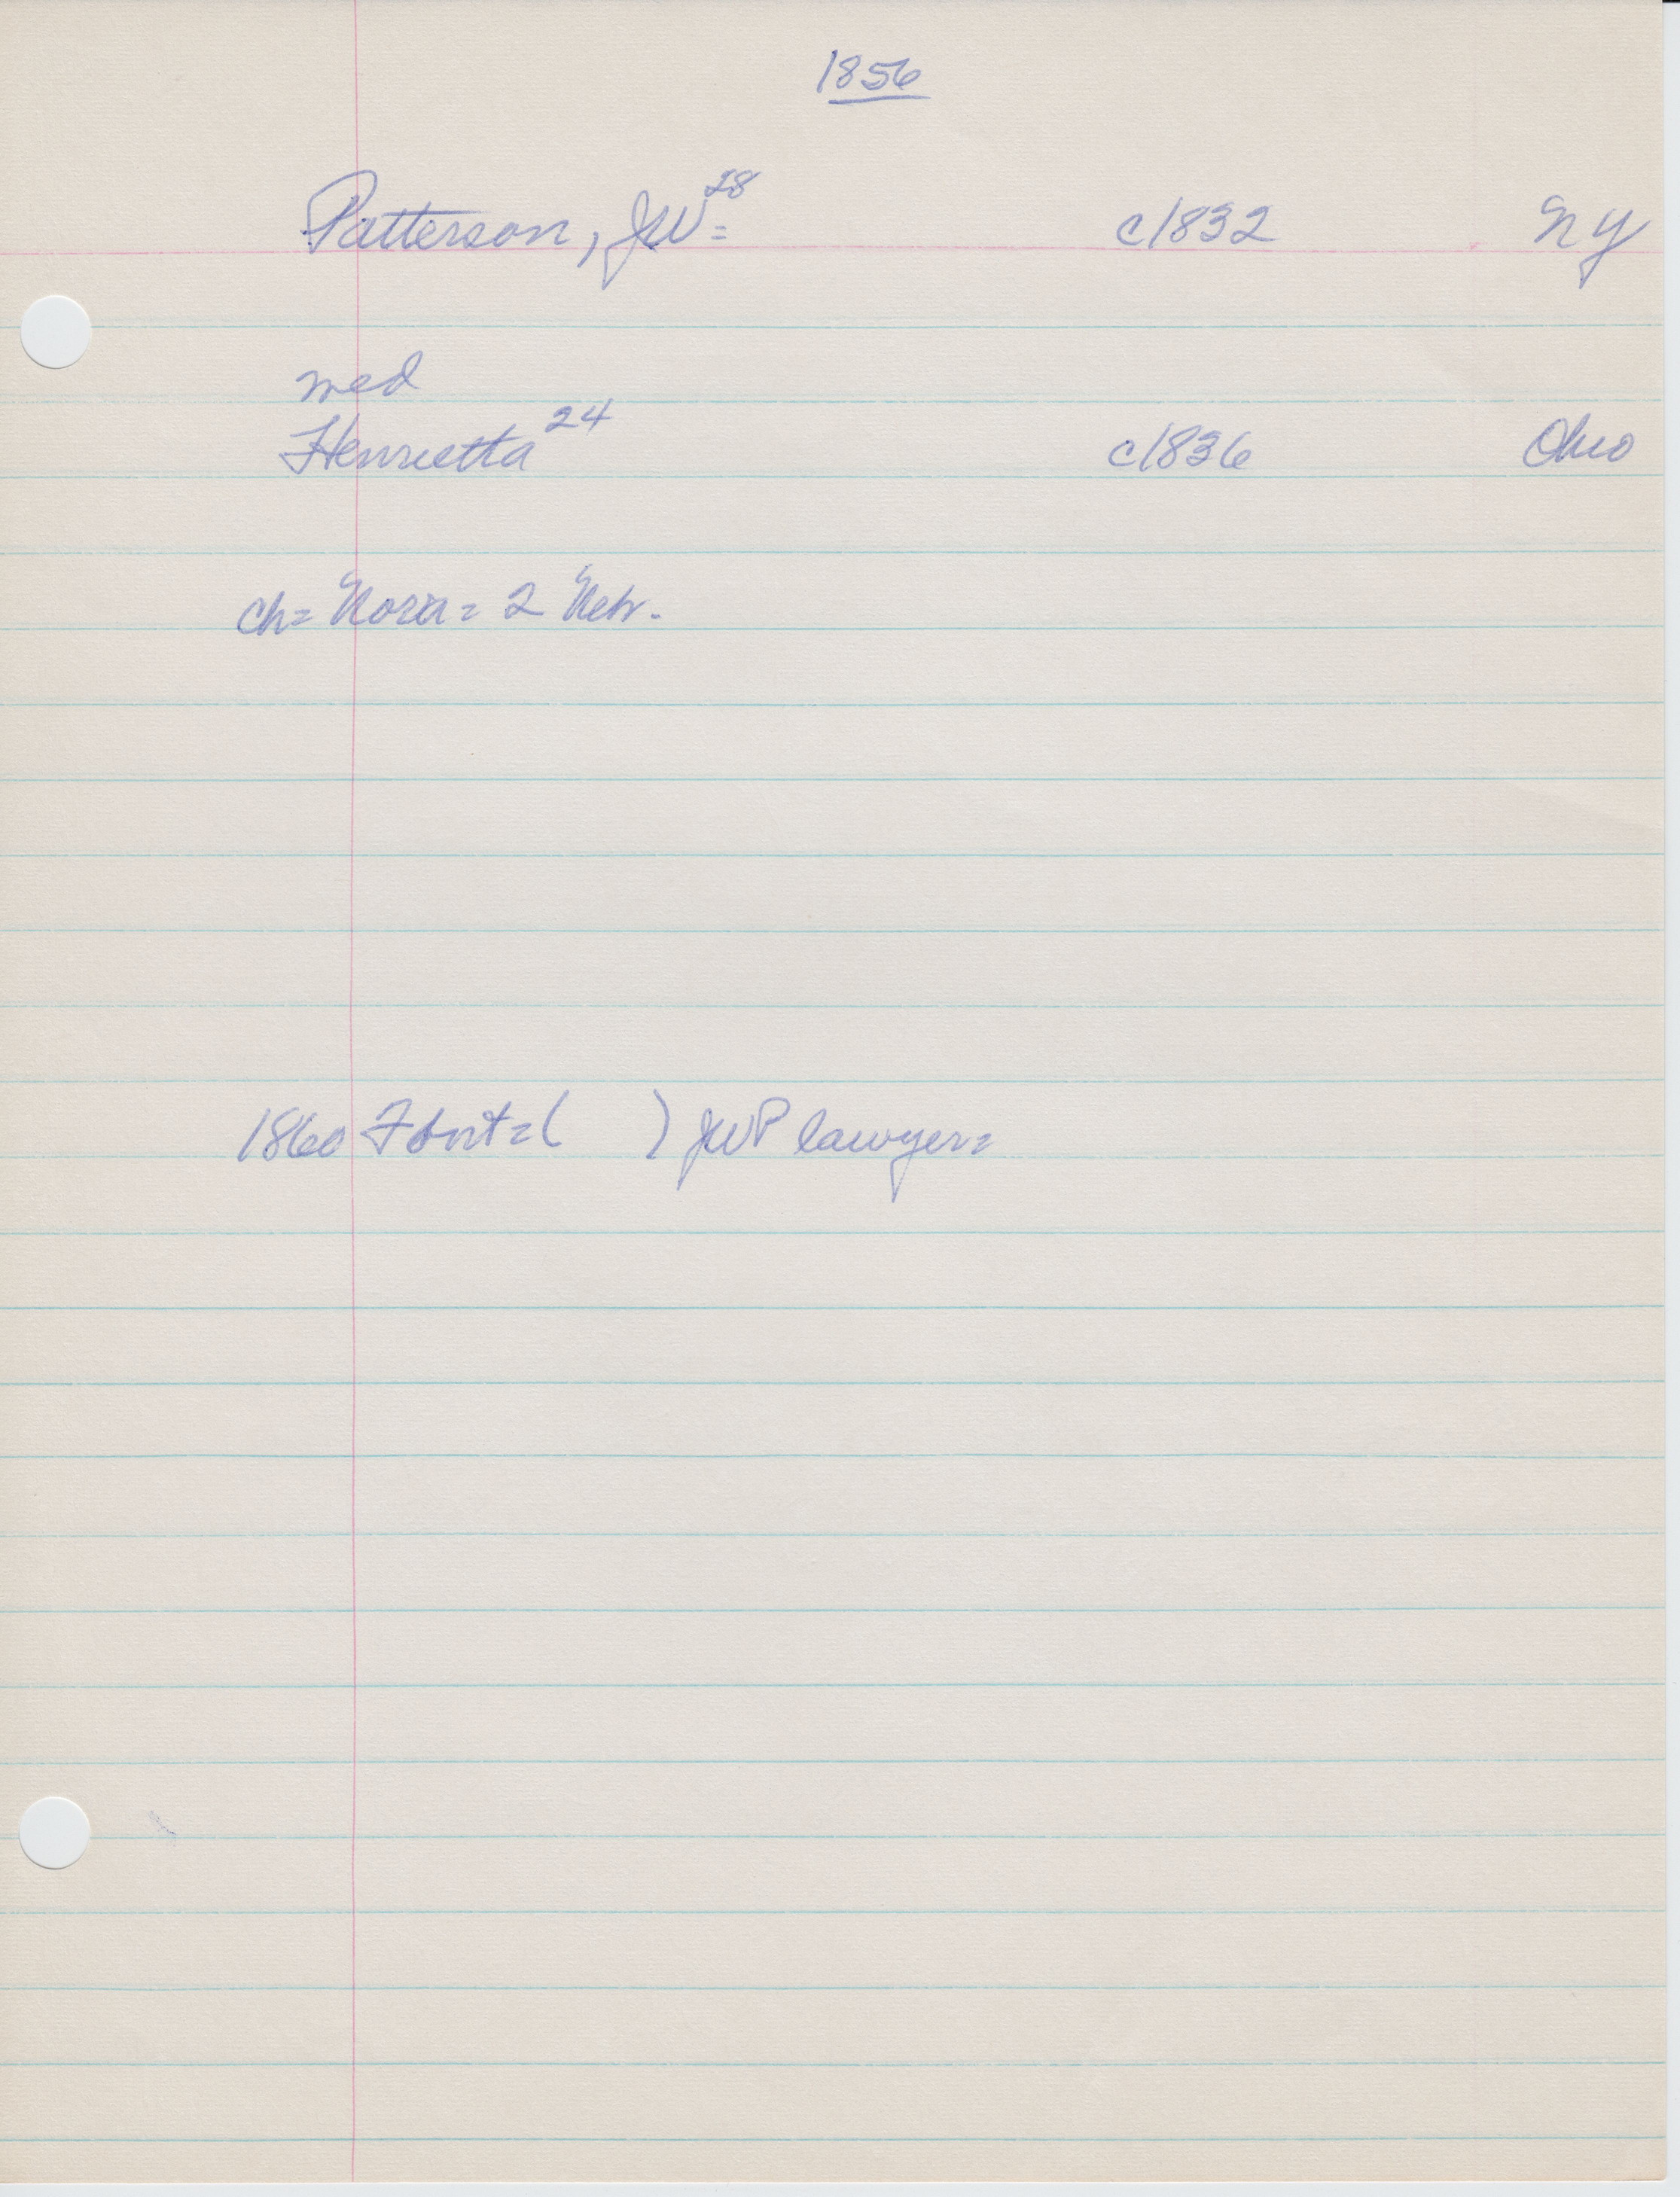 1856
Patterson, JW= 28 c1832 NY
med
Henrietta 24 c1836 Ohio
ch= Nora= 2 Nebr.
1860 = ( ) JWP lawyer=